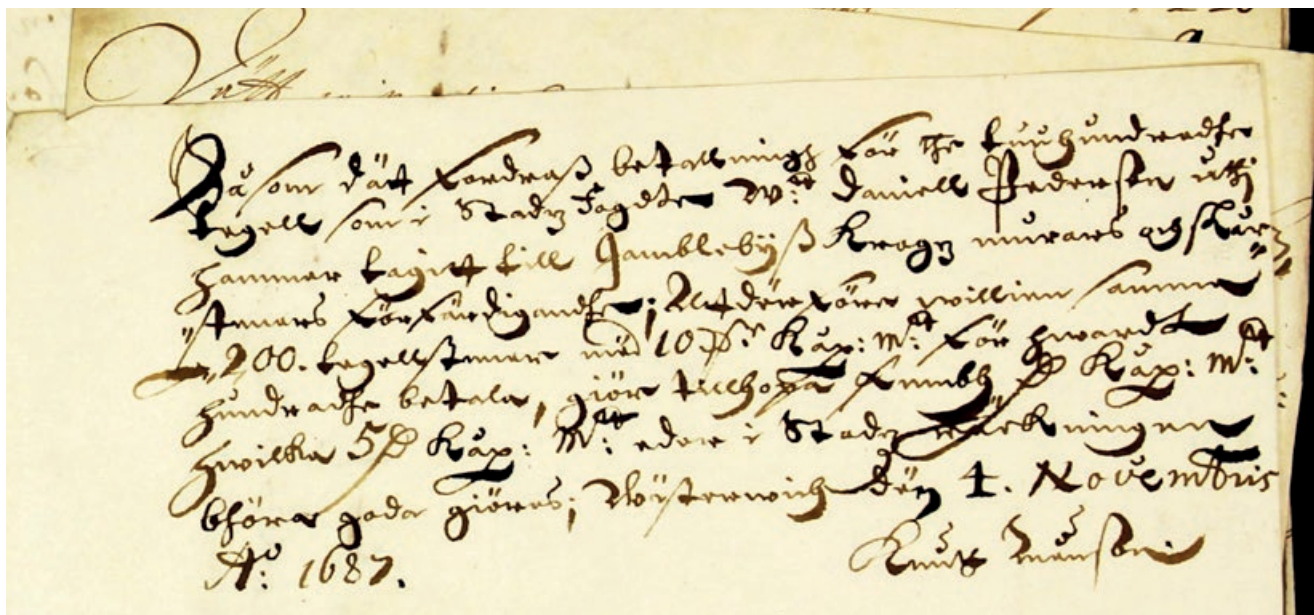 Såsom dätt fordraß betallningh för the tuuhundradhe
tegell som i Stadz fogdten W:tt Daniell Pederson uthj
hammar tagitt till Gamblebyß Krogz murars och skor-
stenars förfärdigandhe; Altdärföre willien samma
200. tegellstenar med 10 Kåp: M:tt för hwardt
hundradhe betala, giör tillhopa fembh D Kåp: M:tt
hwilka 5 D Kåp: M:tt eder i Stadz räckningen
böra goda giöres; Wästerwich dän 4. Novembris
A:o 1687. Knutt Månson